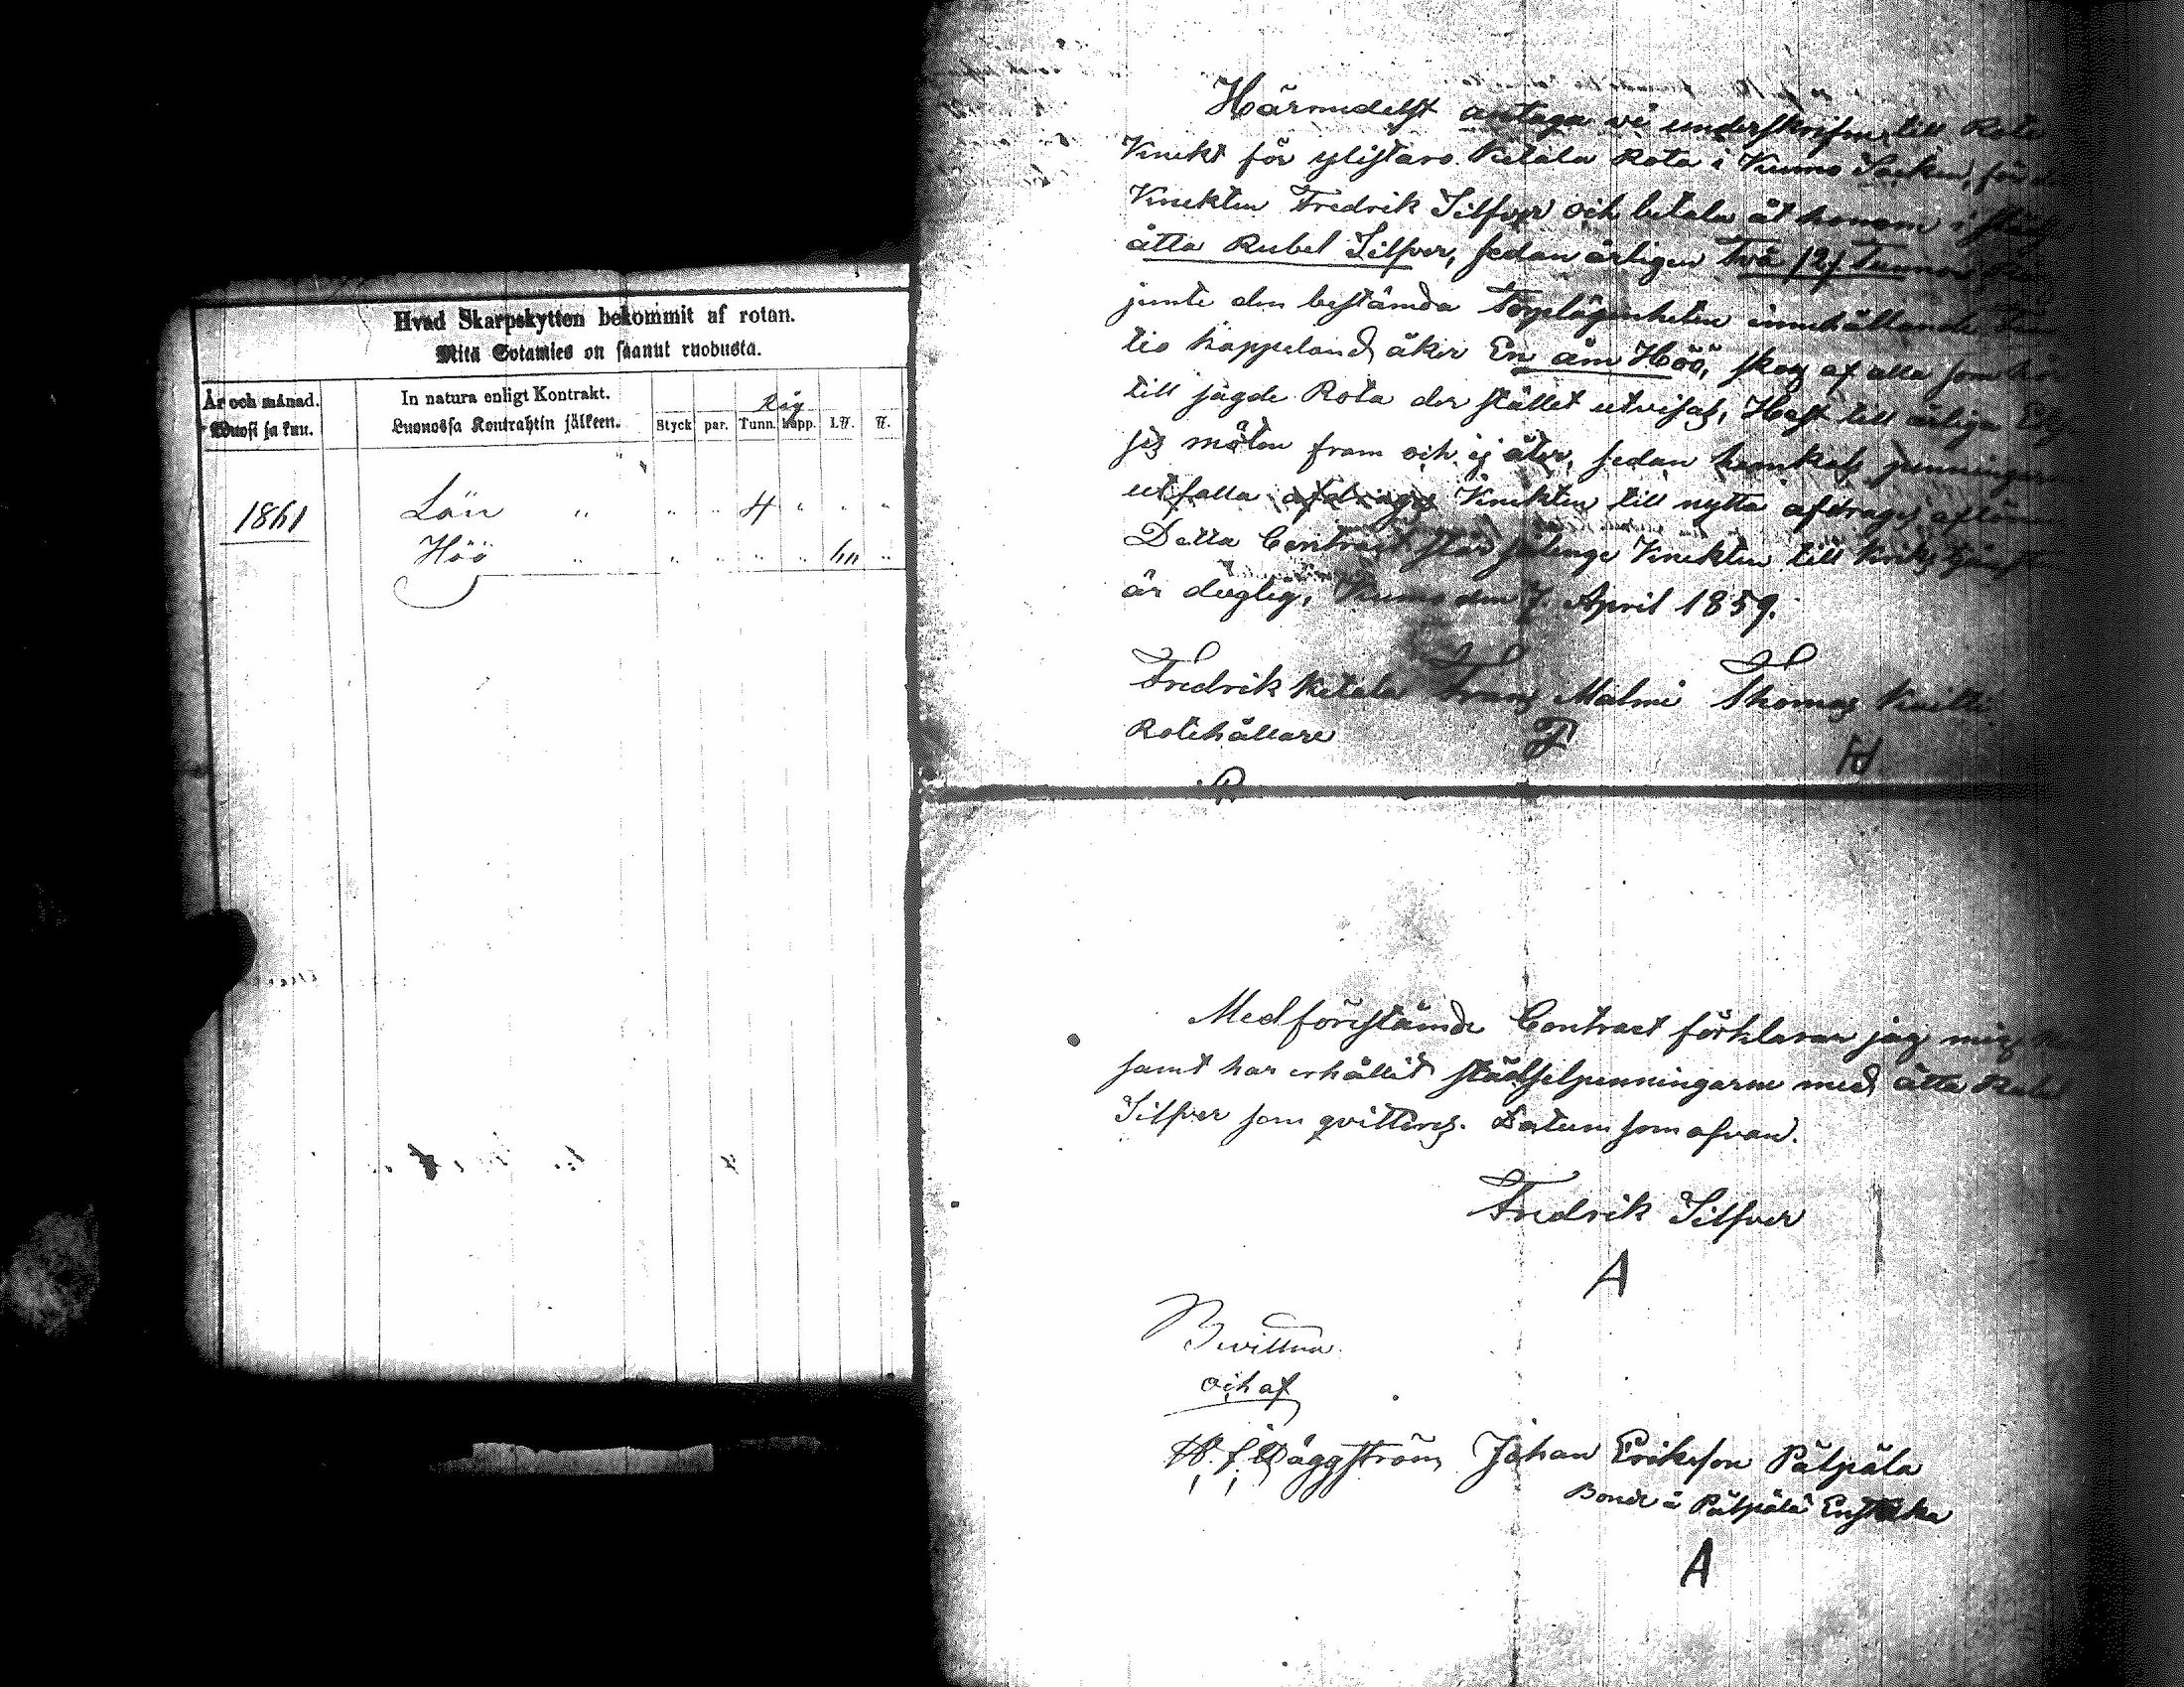 Hvad Skarpskytten bekommit af rotan.
Mitä Sotamies on saanut ruodusta.
År och månad.
Wuosi ja kuu.
In natura enligt Kontrakt.
Luonossa Kontrahtin jälkeen.
Råg
Styck par. Tunn. kapp. L℔. ℔.
1861 Lön " " " 4 " " "
Höö " " " " " "
Härmedelst antaga vi underskrifne till Rote
Knekt för ylistaro Ketala Rota i Kumo Socken,
Knekten Fredrik Silfver och betala åt honom i
åtta Rubel Silfver, sedan årligen Två (2) Tunnor Råg
jemte den bestämda Torplägenheten innehållande
tio kappeland åker En åm Höö, skog af alla som
till sagde Rota der stället utvisas, Hest till årliga
möten fram och åter, sedan penningarne
utfalla Knekten till nytta afdrages
Detta Contract står sålenge Knekten till
är duglig, Kumo den 7. April 1859.
Fredrik Ketala Franz Malmi Thomas
Rotehållare F
Med förestämde Contract förklarar jag mig
samt har erhållit städselpenningarne med åtta Rubel
Silfver som qvitteras. Datum som ofvan.
Fredrik Silfver
A
Bevittna
och af
Häggström Johan Eriksson Pälpälä
Bonde i Pälpälä
A